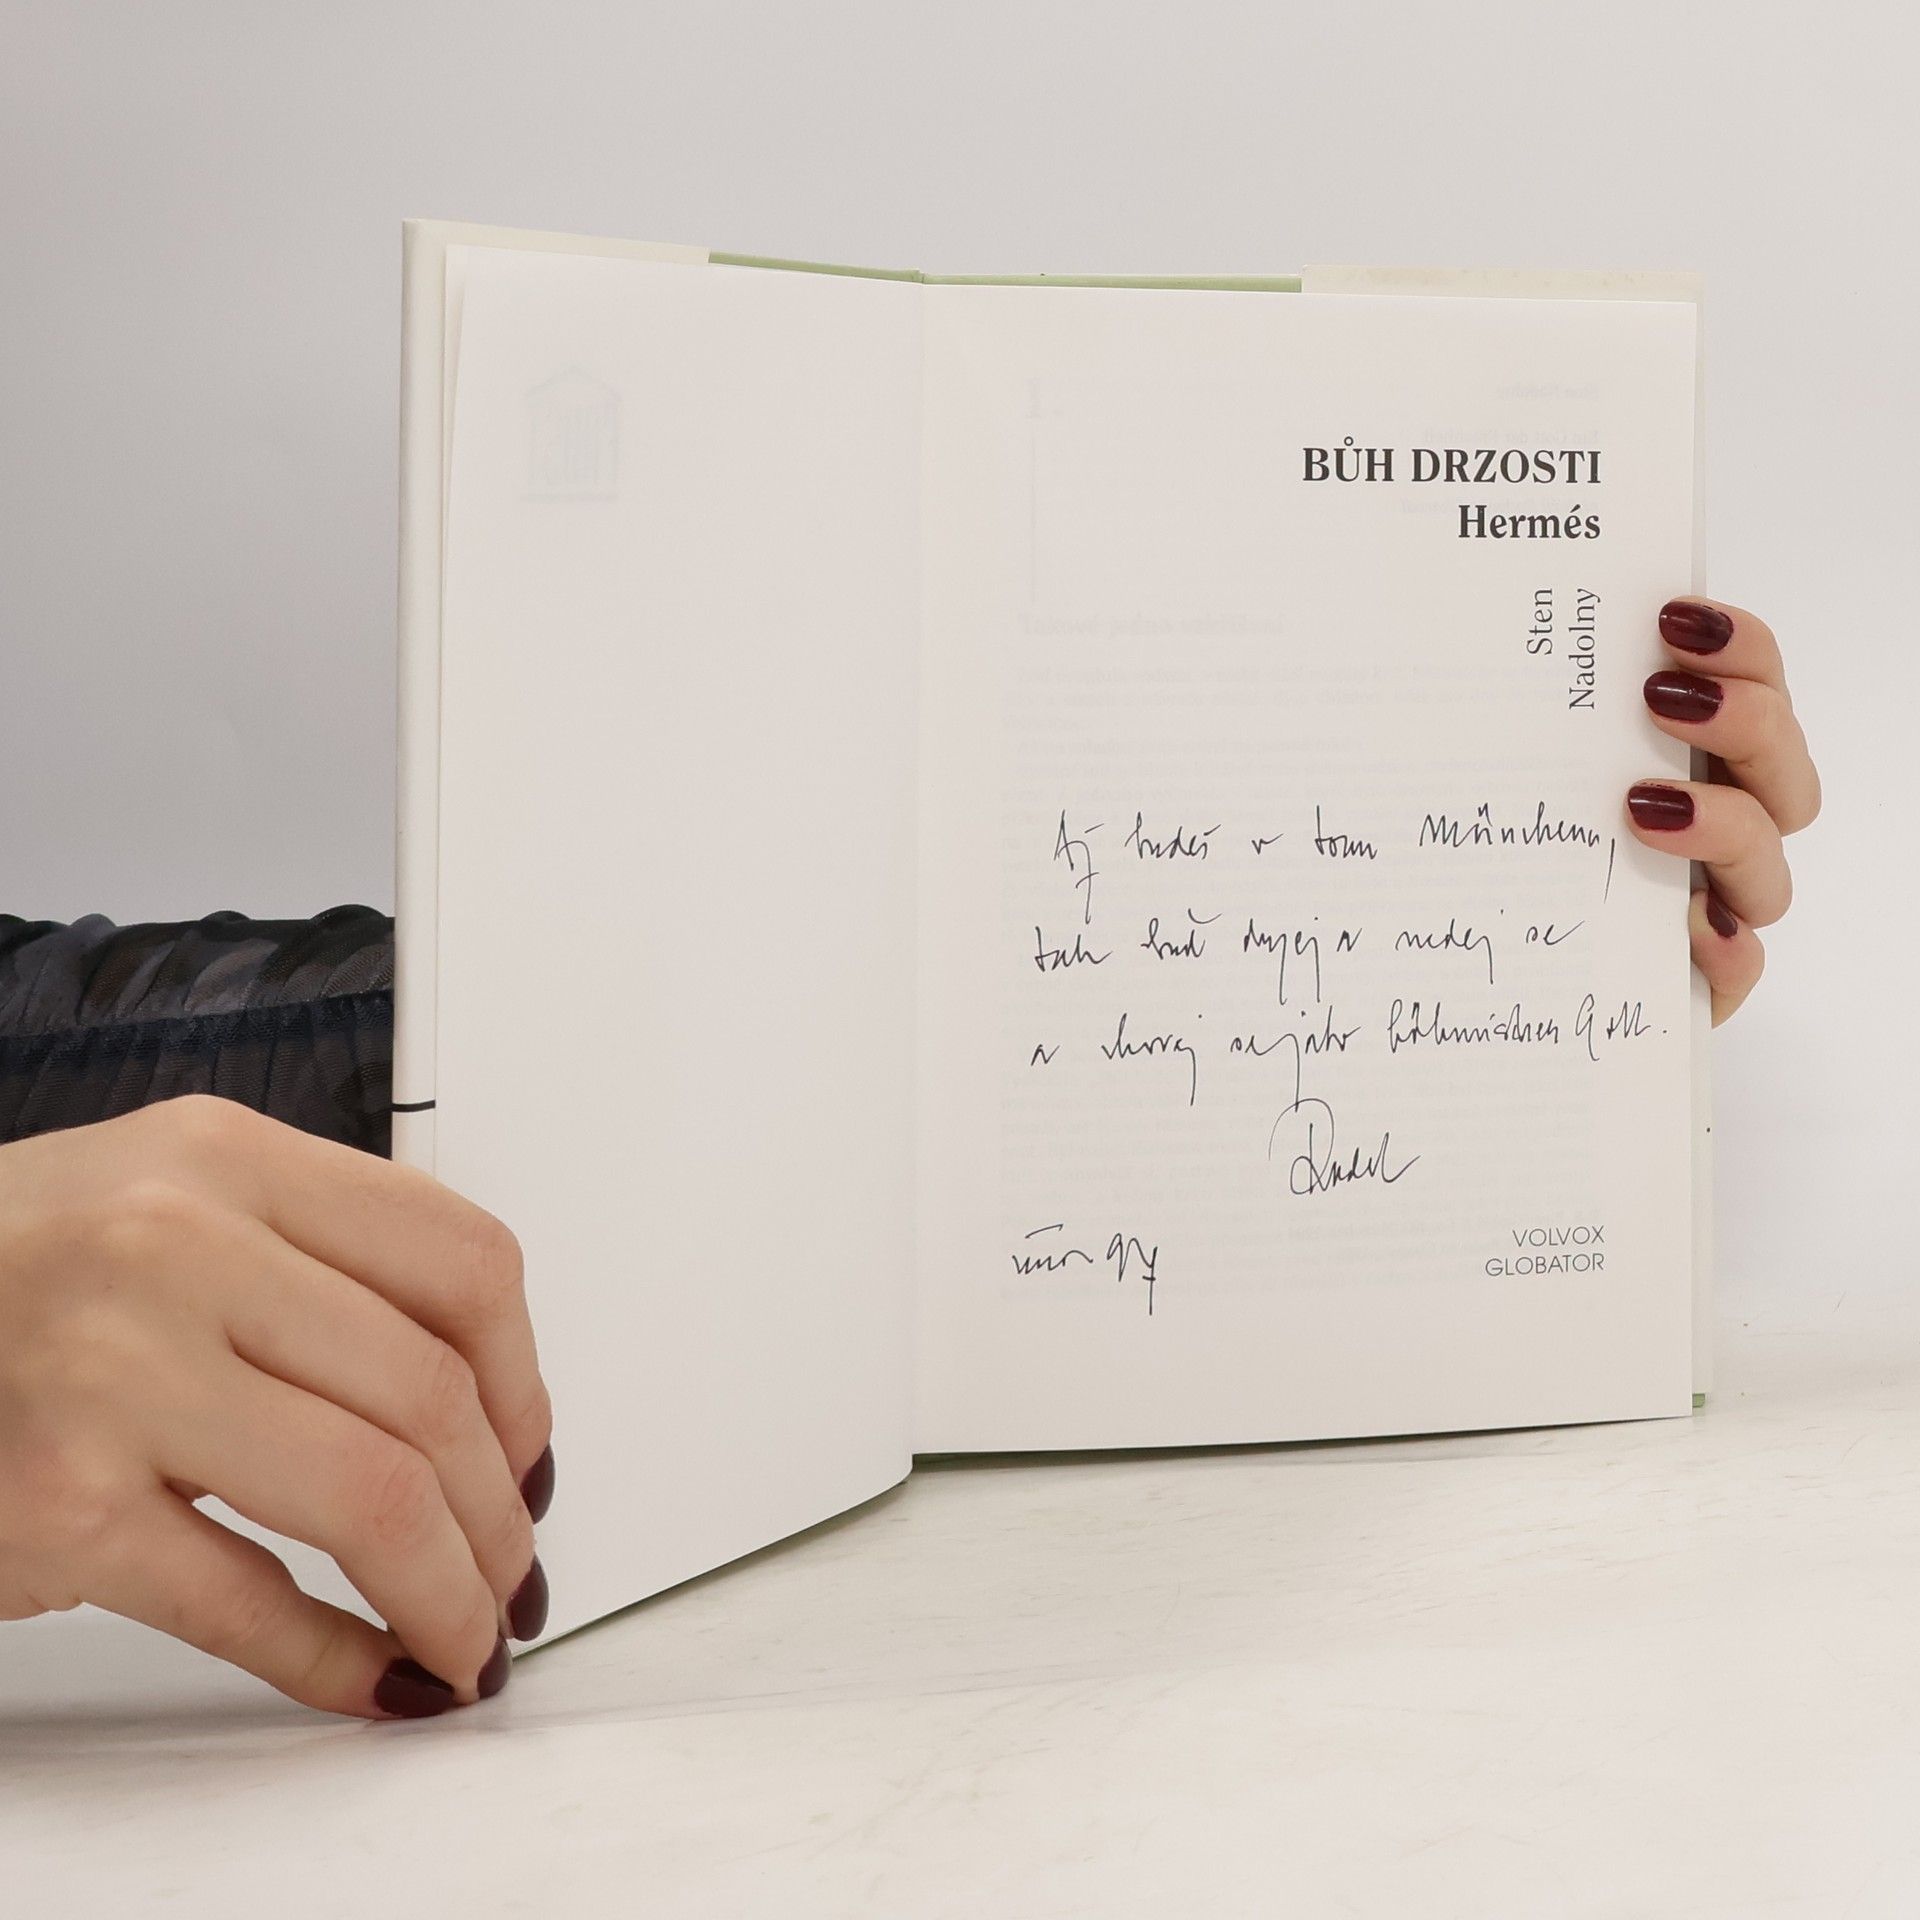 BŮH DRZOSTI
Hermés
Sten
Nadolny
Až budeš v tom Münchenu,
tak buď drzej a nedej se
a chovej se jako böhmischer Gott.
Radek
únor 97
VOLVOX
GLOBATOR